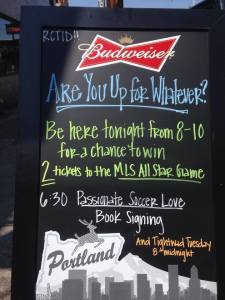 RCTID!!
Budweiser
Are You Up for Whatever?
Be here tonight from 8-10
for a chance to win
2 tickets to the MLS All Star Game
6:30 Passionate Soccer Love
Book Signing
And Tightwad Tuesday
@ midnight
Portland